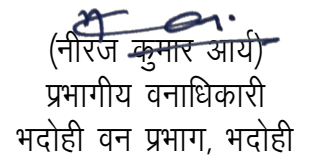 (नीरज कुमार आर्य)
प्रभागीय वनाधिकारी
भदोही वन प्रभाग, भदोही